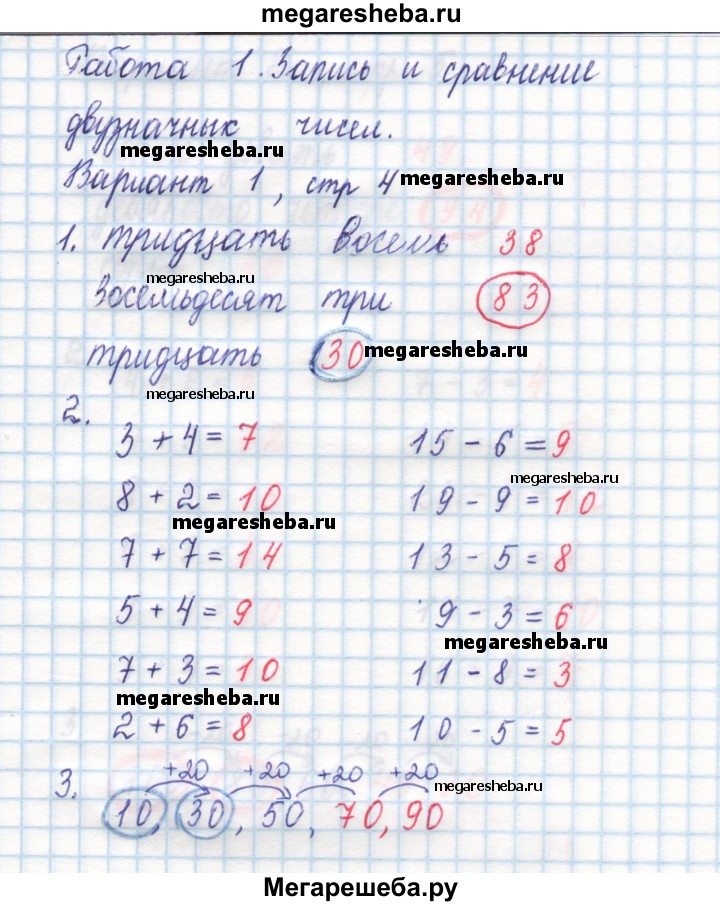 megaresheba.ru
Работа 1. Запись и сравнение
двузначных чисел.
megaresheba.ru
Вариант 1, стр 4 megaresheba.ru
1. тридцать восемь 38
megaresheba.ru
Восемьдесят три 83
тридцать 30 megaresheba.ru
megaresheba.ru
2.
3 + 4 = 7 15 - 6 = 9
megaresheba.ru
8 + 2 = 10 19 - 9 = 10
megaresheba.ru
7 + 7 = 14 13 - 5 = 8
5 + 4 = 9 9 - 3 = 6
megaresheba.ru
7 + 3 = 10 11 - 8 = 3
megaresheba.ru
2 + 6 = 8 10 - 5 = 5
+20 +20 +20 +20
megaresheba.ru
3. 10, 30, 50, 70, 90
Мегарешеба.ру